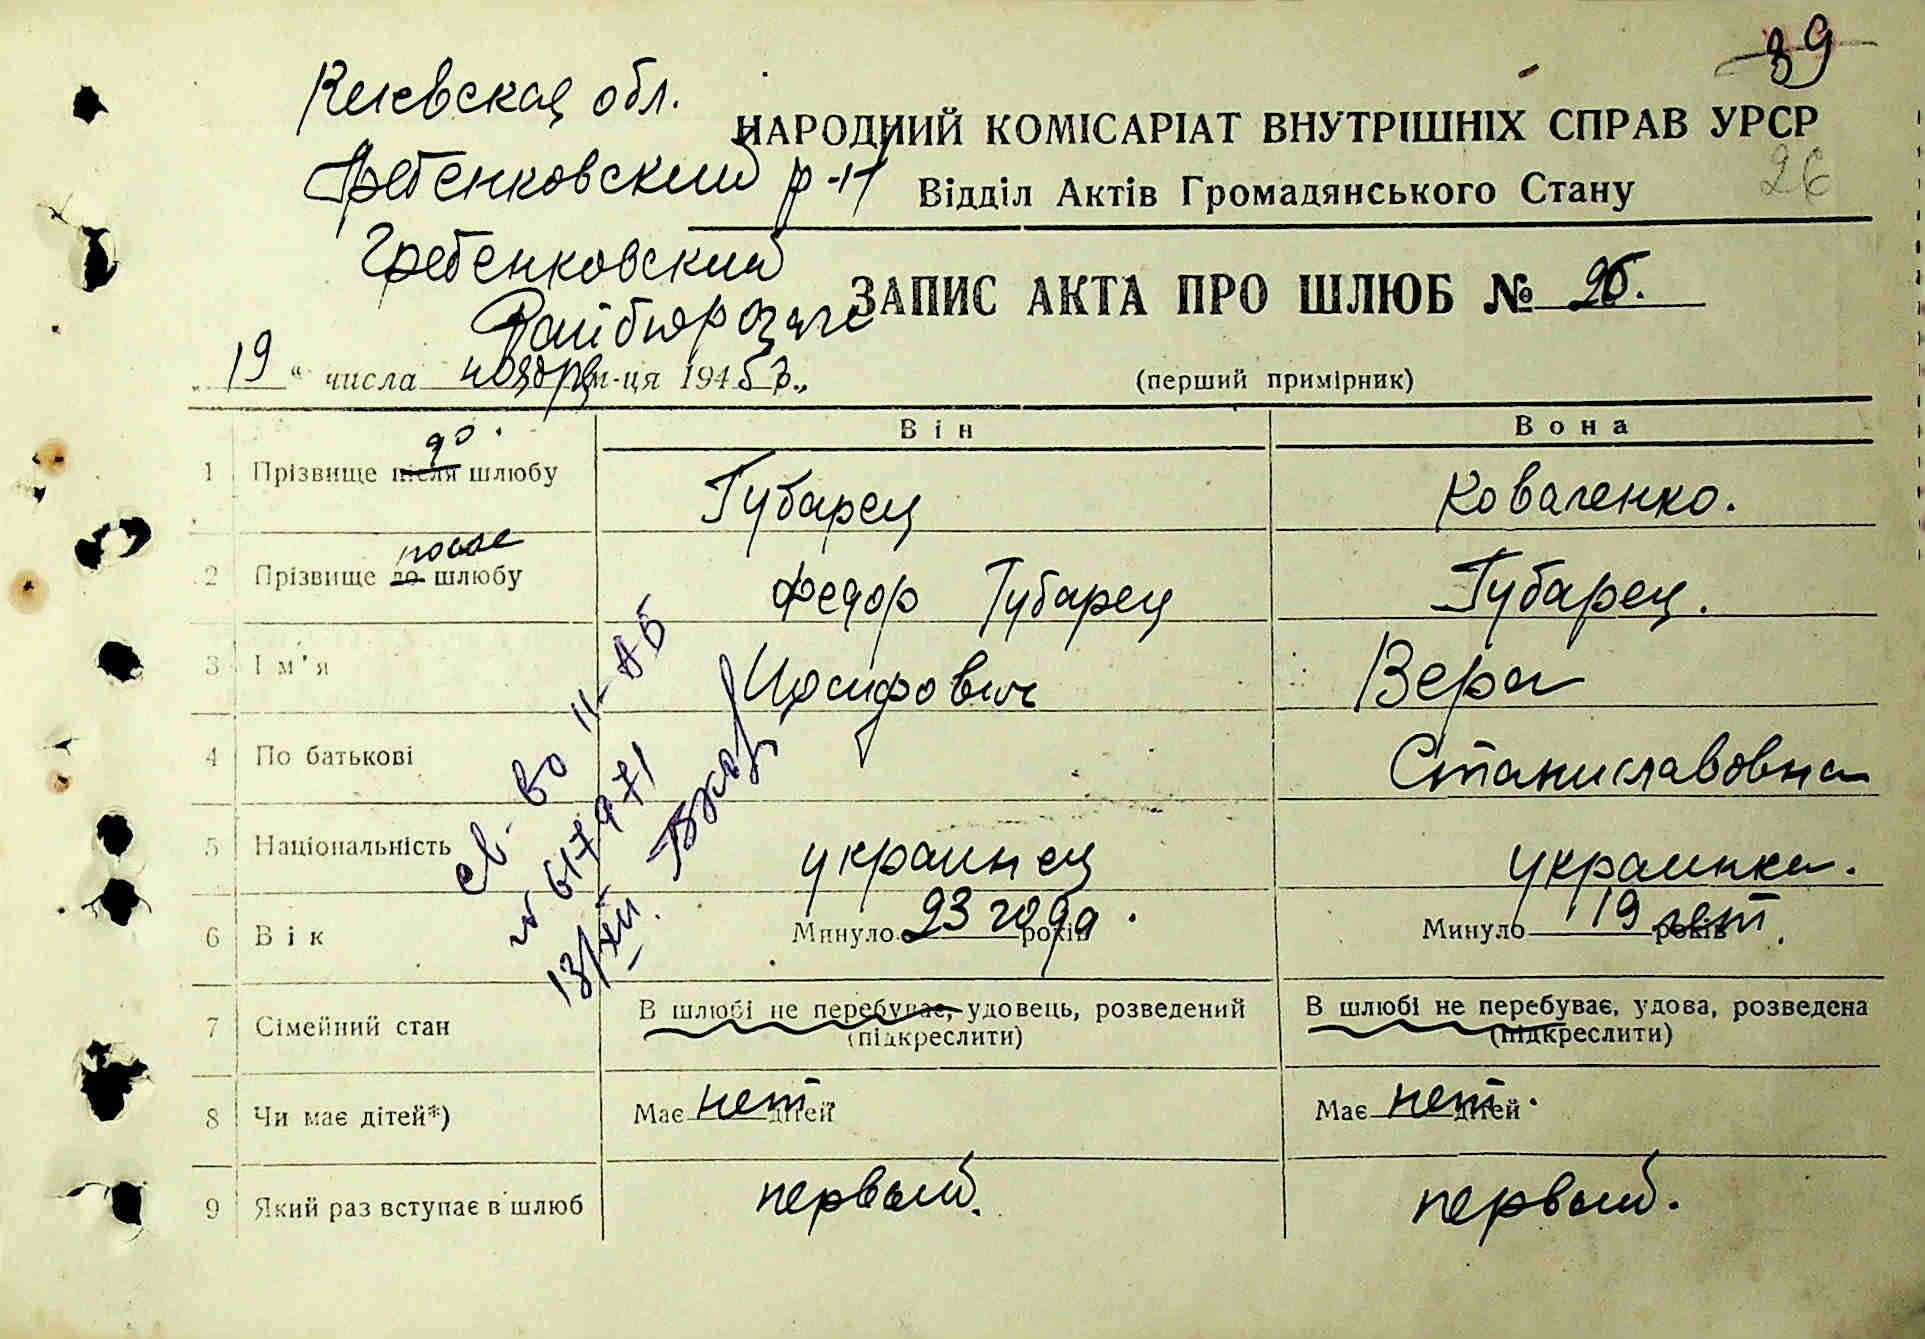 89
Киевская обл.
НАРОДНИЙ КОМІСАРІАТ ВНУТРІШНІХ СПРАВ УРСР
26
Гребенковский р-н
Відділ Актів Громадянського Стану
Гребенковский
ЗАПИС АКТА ПРО ШЛЮБ № 26.
Райбюро загс
„19“ числа ноября м-ця 1945 г.
(перший примірник)
Він Вона
1 Прізвище після до шлюбу Губарец Коваленко.
2 Прізвище до после шлюбу Федор Губарец Губарец.
3 Ім'я Иосифович Вера
4 По батькові Станиславовна
св-во II-АБ
№ 617971
13/XII
5 Національність украинец украинка.
6 Вік Минуло 23 года років Минуло 19 лет років.
7 Сімейний стан В шлюбі не перебуває, удовець, розведений (підкреслити) В шлюбі не перебуває, удова, розведена (підкреслити)
8 Чи має дітей*) Має нет. дітей Має нет. дітей
9 Який раз вступає в шлюб первый. первый.